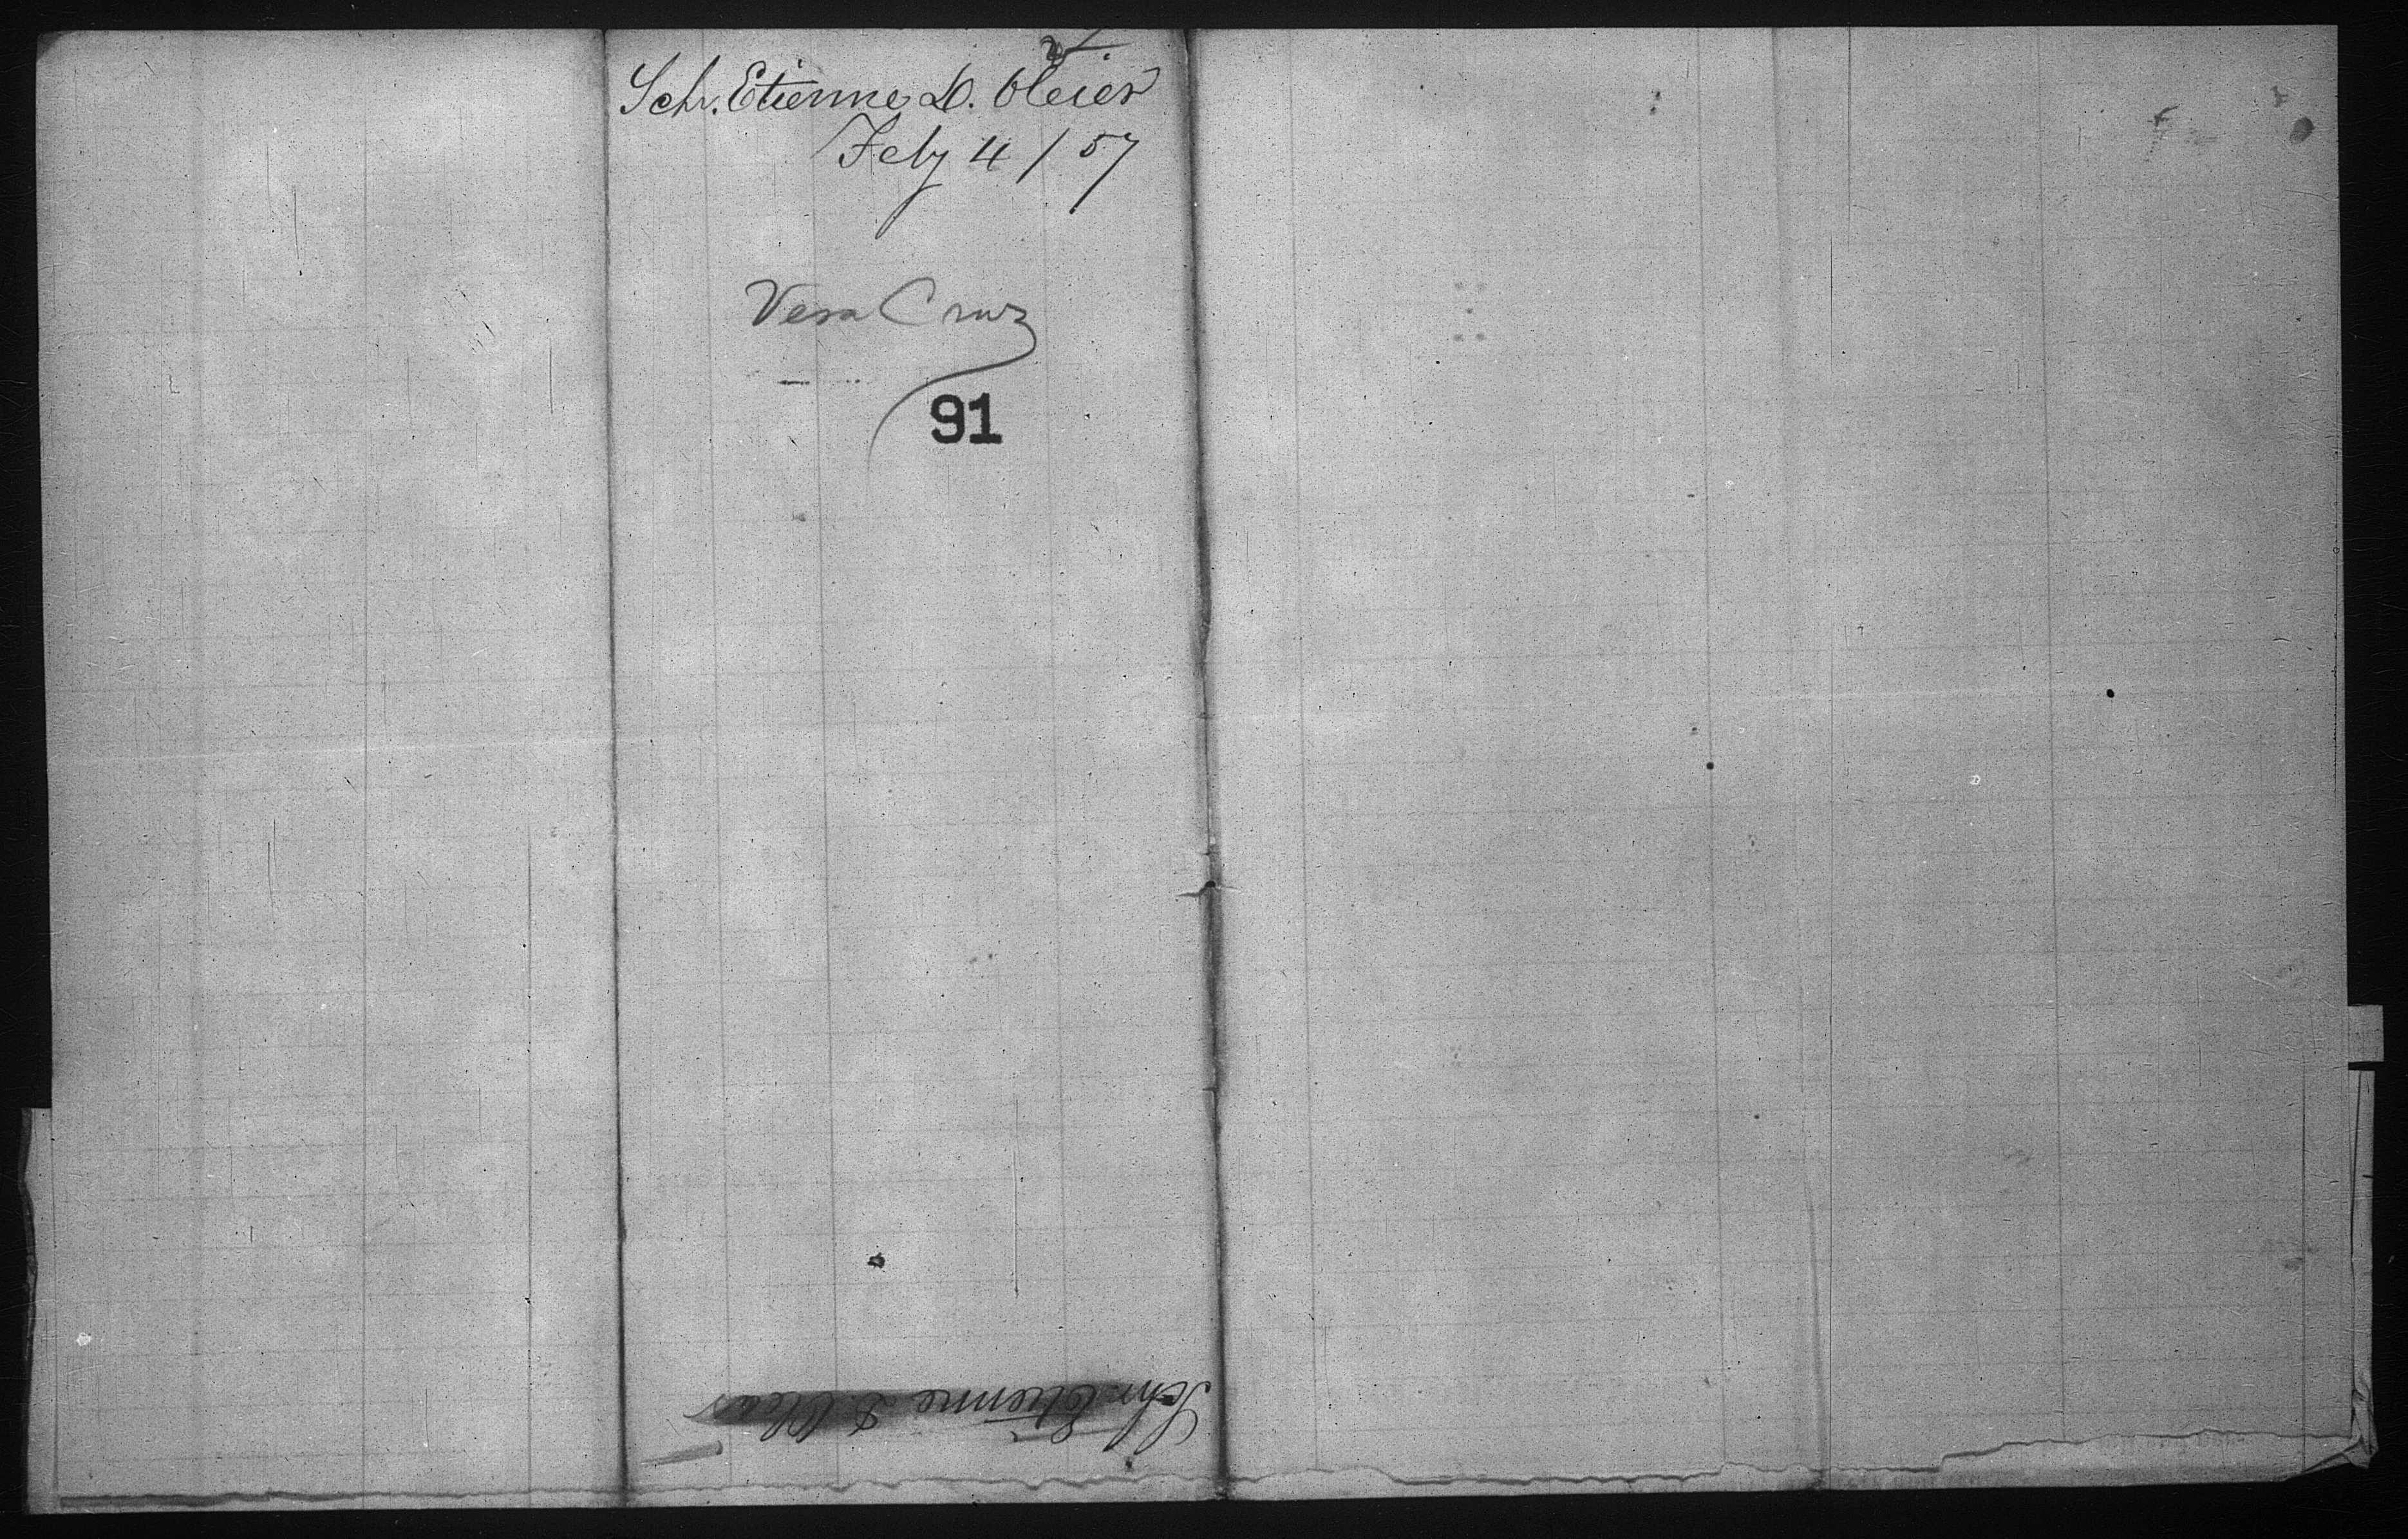 Schr. Etienne D. Oleier
Feby 4 / 57
Vera Cruz
91
Schr. Etienne D